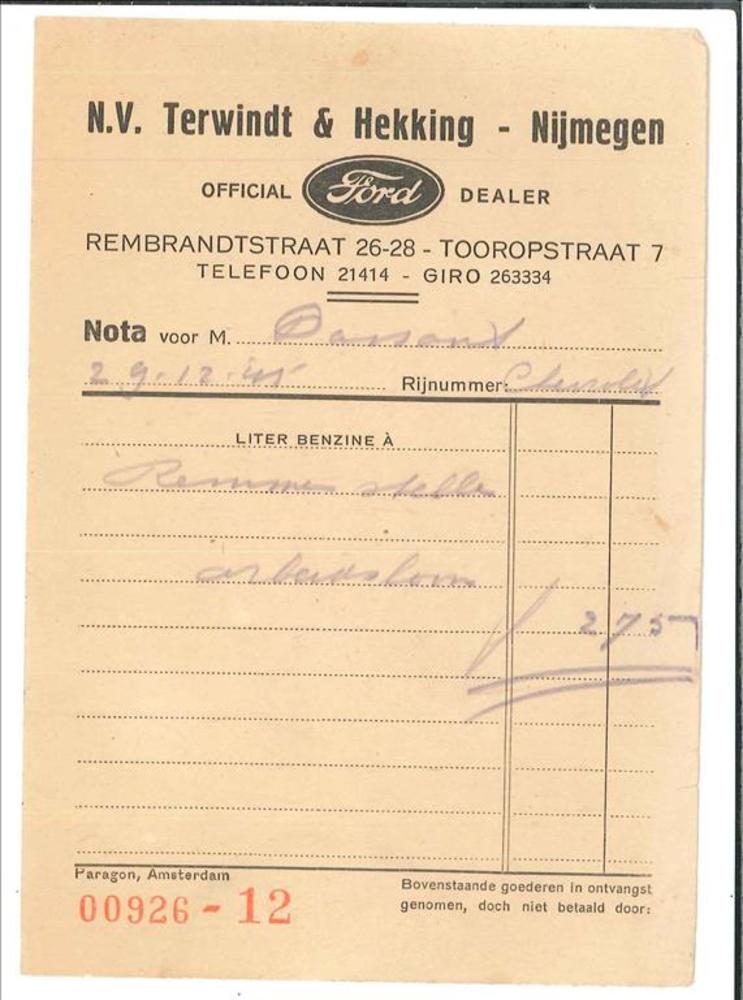 N.V. Terwindt & Hekking - Nijmegen
OFFICIAL Ford DEALER
REMBRANDTSTRAAT 26-28 - TOOROPSTRAAT 7
TELEFOON 21414 - GIRO 263334
Nota voor M.
29-12-45 Rijnummer: Chevrolet
LITER BENZINE À
Remmen stellen
arbeidsloon
275
Paragon, Amsterdam
00926 - 12
Bovenstaande goederen in ontvangst
genomen, doch niet betaald door: